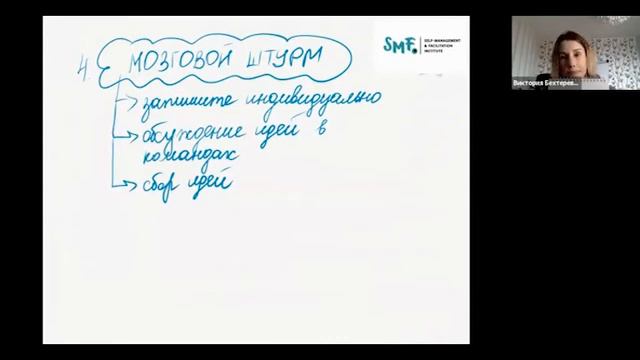 4. МОЗГОВОЙ ШТУРМ
SMF.
SELF-MANAGEMENT
& FACILITATION
INSTITUTE
запишите индивидуально
обсуждение идей в
командах
сбор идей
Виктория Бехтерев...